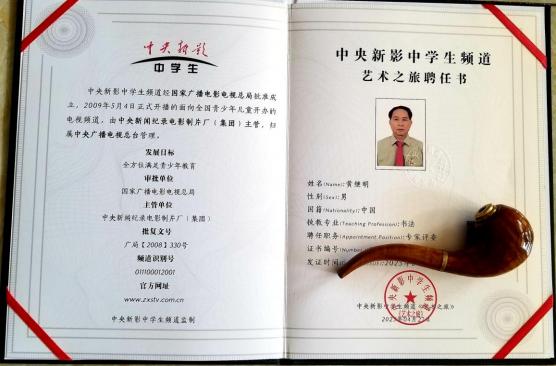 中央新影
中学生
中央新影中学生频道经国家广播电影电视总局批准成
立，2009年5月4日正式开播的面向全国青少年儿童开办的
电视频道，由中央新闻纪录电影制片厂（集团）主管，归
属中央广播电视总台管理。
发展目标
全方位满足青少年教育
审批单位
国家广播电影电视总局
主管单位
中央新闻纪录电影制片厂（集团）
批复文号
广局【2008】330号
频道识别号
011100012001
官方网址
www.zxstv.com.cn
中央新影中学生频道监制
中央新影中学生频道
艺术之旅聘任书
姓名(Name):黄继明
性别(Sex):男
国籍(Nationality):中国
执教专业(Teaching Profession):书法
聘任职务(Appointment Position):专家评委
证书编号(Number
发证时间
中央新影中学生频道《艺术之旅》